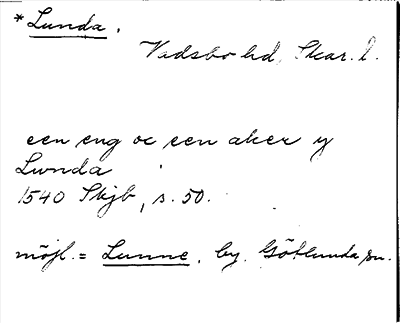 *Lunda.
Vadsbo hd, Skar. l.
een eng oc een aker y
Lunda
1540 Skjb, s. 50.
möjl. = Lunne, by, Götlunda sn.